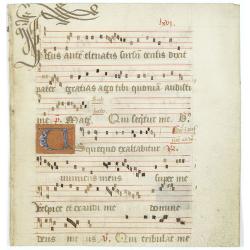 lxvi.
Jesus autē elevatis sursū oculis dixit
pater gratias ago tibi quoniā audisti
me V. Mag. Qui sequitur me
Usquequo exaltabitur
inimicus meus super me
respice et exaudi me domine
deus meus V. Qui tribulāt me